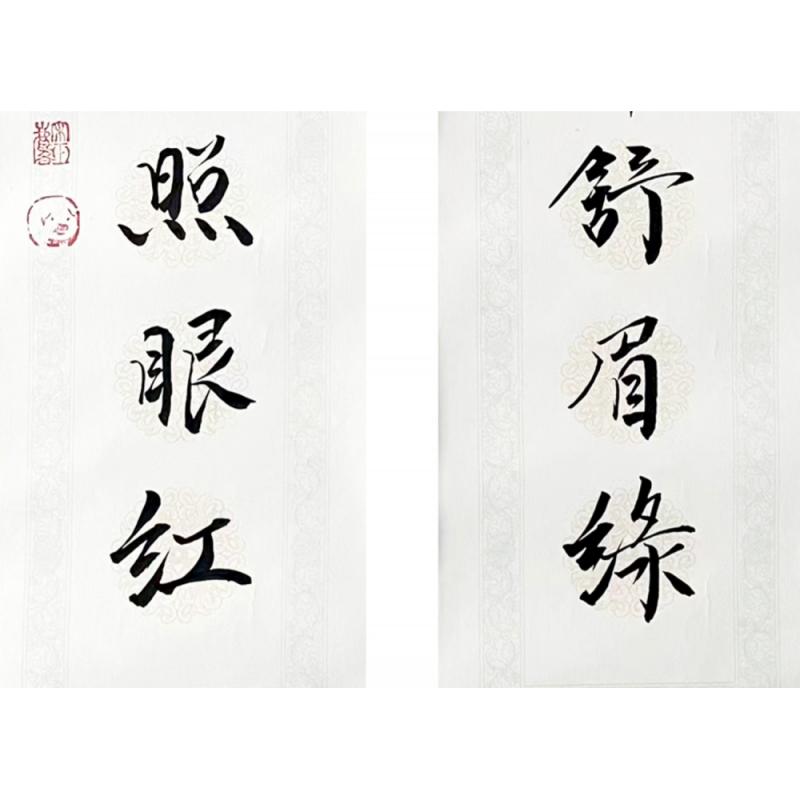 舒眉綠
照眼红